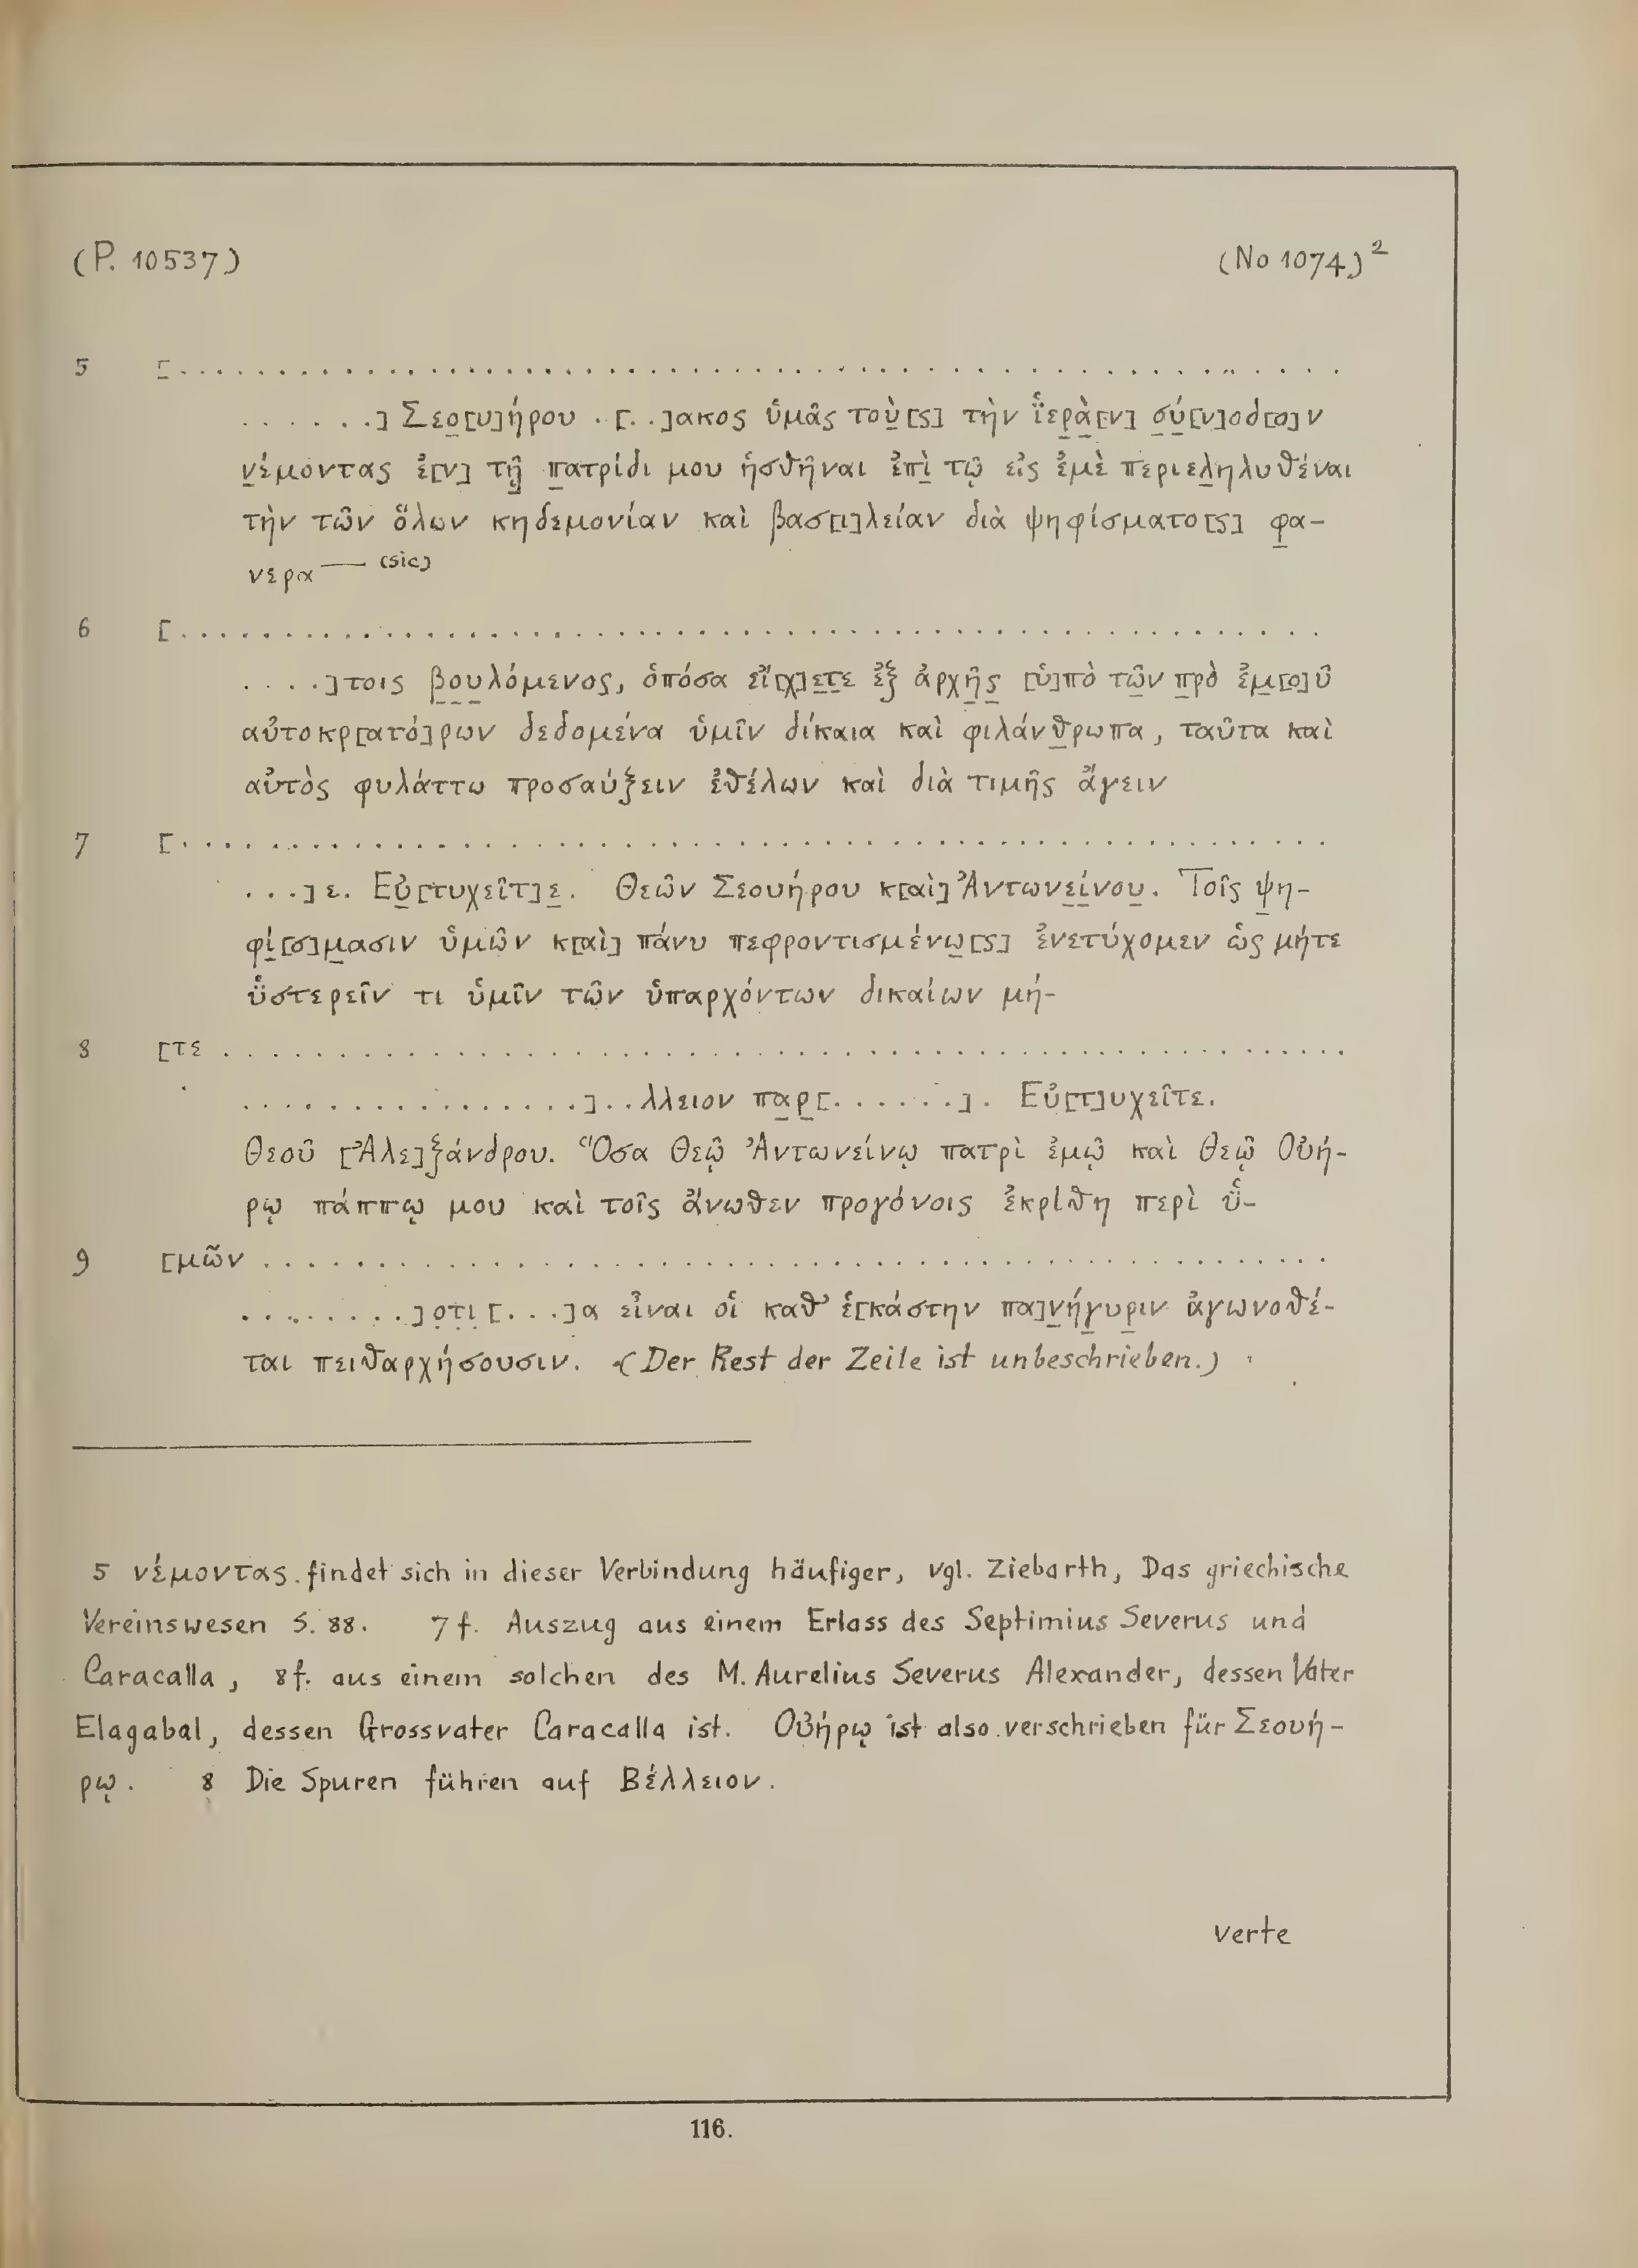 (P. 10537) (No 1074)²
5 [. . . . . . . . . . . . . . . . . . . . . . . . . . . . . . . . . . . . . . . .
. . . . . .] Σεο̣[υ]ήρου . [. .]ακος ὑμᾶς τοὺ̣[ς] τὴν ἱ̈ερ̣ὰ̣[ν] σ̣ύ̣[ν]οδ[ο]ν
ν̣έμοντας ἐ[ν] τῇ̣ π̣ατρίδι μου ἡσθῆναι ἐπὶ̣ τῷ εἰς ἐμὲ περιελ̣ηλυθέναι
τὴν τῶν ὅλων κηδεμονίαν καὶ βασ[ι]λείαν διὰ ψηφίσματο[ς] φ̣α-
νερα— (sic)
6 [. . . . . . . . . . . . . . . . . . . . . . . . . . . . . . . . . . . . . . . .
. . . .]τοις β̣ο̣υ̣λόμενος, ὁπόσα εἴ[χ]ε̣τ̣ε ἐξ ἀρχῆ̣ς̣ [ὑ]πὸ τῶ̣ν π̣ρὸ ἐμ̣[ο]ῦ
αὐτοκρ[ατό]ρων δεδομένα ὑμῖν δίκαια καὶ φιλάνθ̣ρωπα, ταῦτα καὶ
αὐτὸς φυλάττω προσαύξειν ἐθέλων καὶ διὰ τιμῆς ἄγειν
7 [. . . . . . . . . . . . . . . . . . . . . . . . . . . . . . . . . . . . . . . .
. . .]ε. Εὐ̣[τυχεῖτ]ε̣. Θεῶν Σεουήρου κ[αὶ] Ἀντωνε̣ί̣νου̣. Τοῖς ψ̣η-
φί̣[σ]μ̣ασιν ὑμῶν κ[αὶ] πάνυ πεφροντισμένω̣[ς] ἐνετύχομεν ὡς μήτε
ὑ̈στερεῖν τι ὑμῖν τῶν ὑπαρχόντων δικαίων μή-
8 [τε . . . . . . . . . . . . . . . . . . . . . . . . . . . . . . . . . . . . . . .
. . . . . . . . . . . . . . .]. .λλειον πα̣ρ̣[. . . . . .]. Εὐ[τ]υχεῖτε.
Θεοῦ [Ἀλε]ξάνδρου. Ὅσα Θεῷ Ἀντωνείνῳ πατρὶ ἐμῷ καὶ θεῷ Οὐή-
ρῳ πάππῳ μου καὶ τοῖς ἄνωθεν προγόνοις ἐκρίθη περὶ ὑ̈-
9 [μῶν . . . . . . . . . . . . . . . . . . . . . . . . . . . . . . . . . . . . . .
. . . . . . . .]ο̣τ̣ι̣[. . .]α εἶναι οἱ καθ’ ἑ[κάστην πα]ν̣ήγ̣υρ̣ιν ἀγωνοθέ-
ται πειθαρχήσουσιν. (Der Rest der Zeile ist unbeschrieben.)
5 νέμοντας findet sich in dieser Verbindung häufiger, vgl. Ziebarth, Das griechische
Vereinswesen S. 88. 7 f. Auszug aus einem Erlass des Septimius Severus und
Caracalla, 8 f. aus einem solchen des M. Aurelius Severus Alexander, dessen Vater
Elagabal, dessen Grossvater Caracalla ist. Οὐήρῳ ist also verschrieben für Σεουή-
ρῳ. 8 Die Spuren führen auf Βέλλειον.
verte
116.